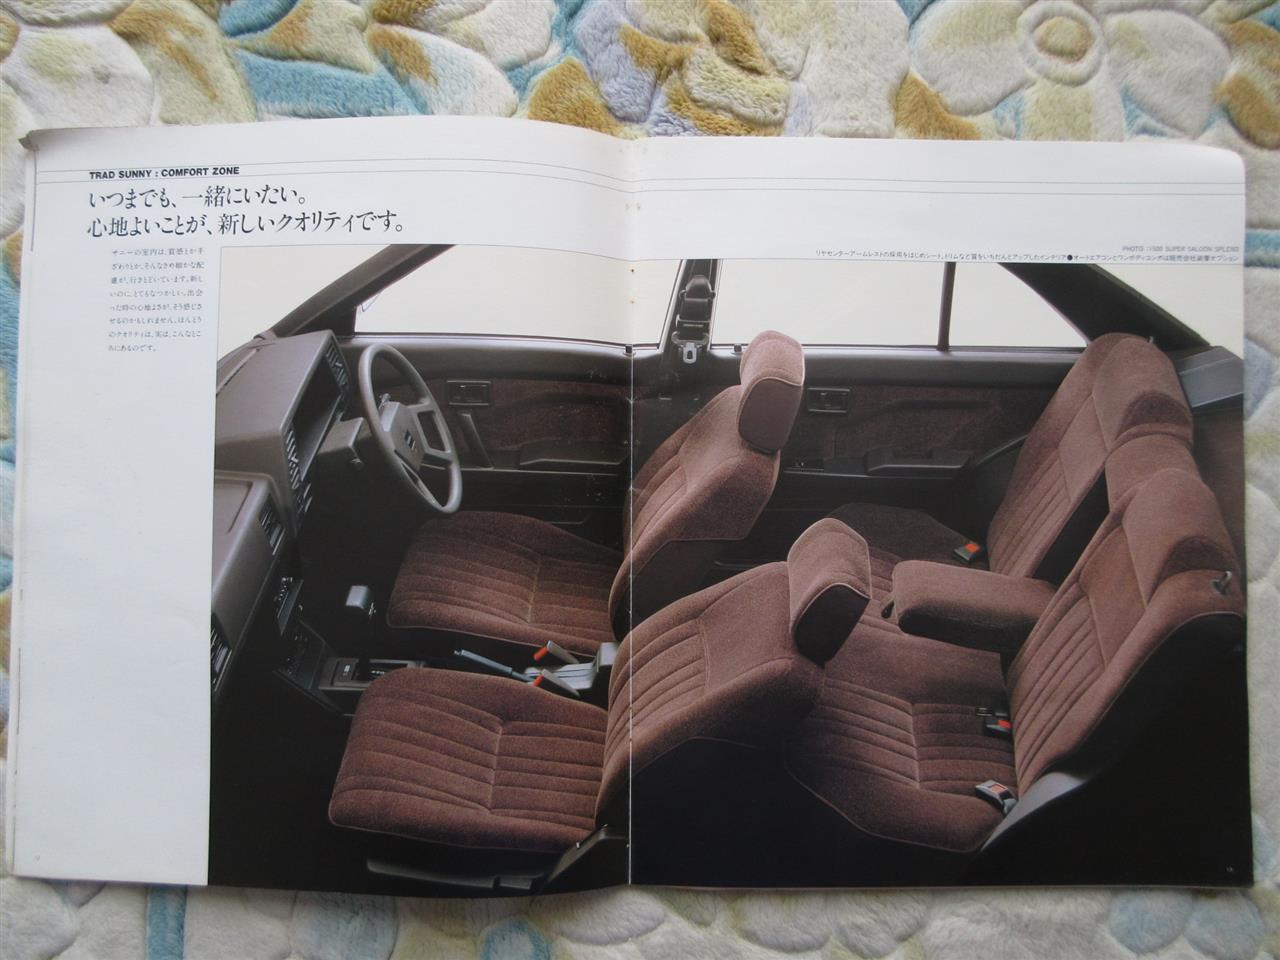 TRAD SUNNY : COMFORT ZONE
いつまでも、一緒にいたい。
心地よいことが、新しいクオリティです。
サニーの室内は、質感とか手
ざわりとか、そんなきめ細かな配
慮が、行きとどいています。新し
いのに、とてもなつかしい。出会
った時の心地よさが、そう感じさ
せるのかもしれません。ほんとう
のクオリティは、実は、こんなとこ
ろにあるのです。
PHOTO : 1500 SUPER SALOON SPLEND
リヤセンターアームレストの採用をはじめシート、トリムなど質をいちだんとアップしたインテリア●オートエアコンとワンボディコンポは販売会社装着オプション